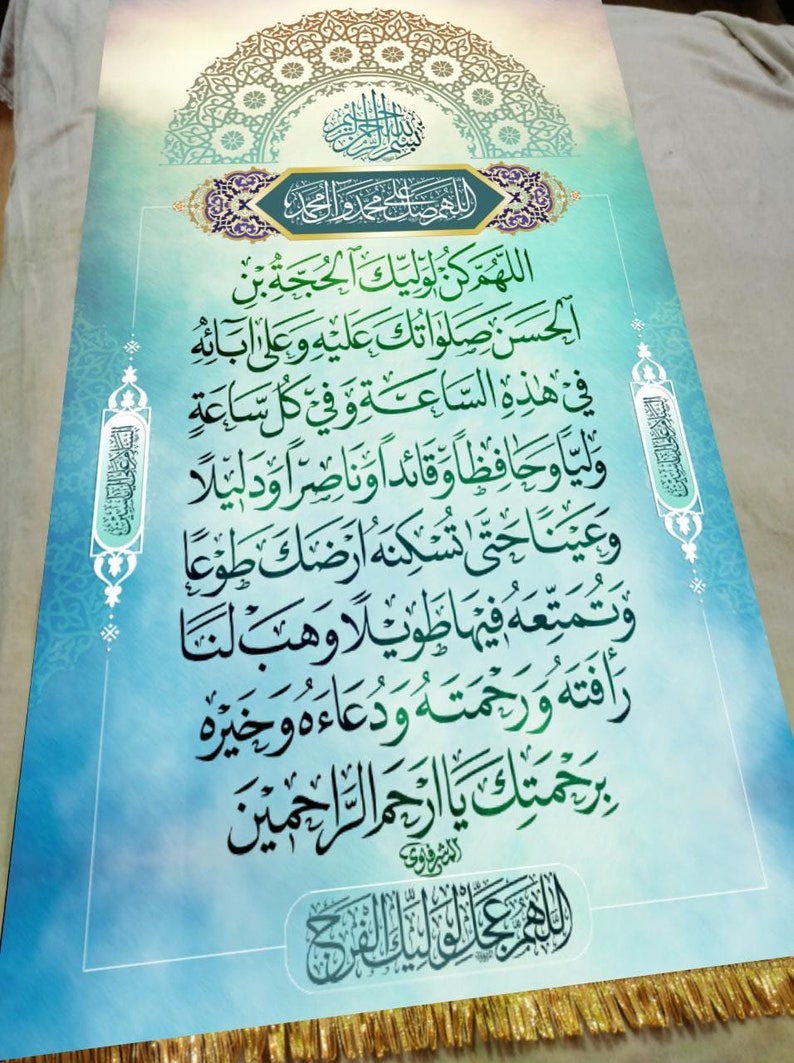 بسم الله الرحمن الرحيم
اللهم صل على محمد وآل محمد
اللَّهُمَّ كُنْ لِوَلِيِّكَ الْحُجَّةِ بْنِ
الْحَسَنِ صَلَوَاتُكَ عَلَيْهِ وَعَلَىٰ آبَائِهِ
فِي هٰذِهِ السَّاعَةِ وَفِي كُلِّ سَاعَةٍ
وَلِيًّا وَحَافِظًا وَقَائِدًا وَنَاصِرًا وَدَلِيلًا
وَعَيْنًا حَتَّىٰ تُسْكِنَهُ أَرْضَكَ طَوْعًا
وَتُمَتِّعَهُ فِيهَا طَوِيلًا وَهَبْ لَنَا
رَأْفَتَهُ وَرَحْمَتَهُ وَدُعَاءَهُ وَخَيْرَهُ
بِرَحْمَتِكَ يَا أَرْحَمَ الرَّاحِمِينَ
المشرفاوي
اللهم عجل لوليك الفرج
السلام على آل ياسين
السلام على آل ياسين